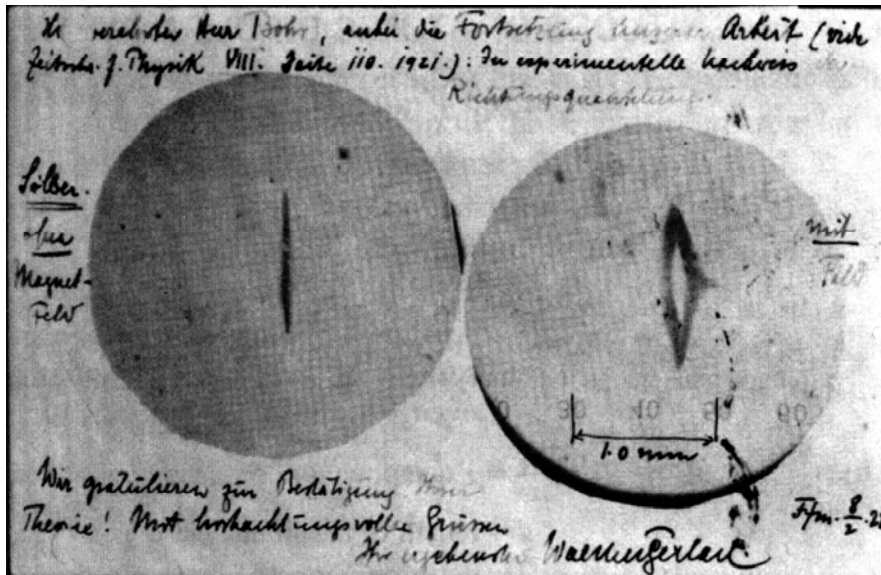 verehrter Herr Bohr, anbei die Fortsetzung unserer Arbeit (vide
Zeitschr. f. Physik VIII. Seite 110. 1921.): Der experimentelle Nachweis
Richtungsquantelung.
Silber
ohne
Magnet-
Feld
mit
Feld
0 30 40 50 60
1.0 mm
Wir gratulieren zur Bestätigung Ihrer
Theorie! Mit hochachtungsvollen Grüssen
Ihr ergebenster Walther Gerlach.
Ffm. 8/2. 22